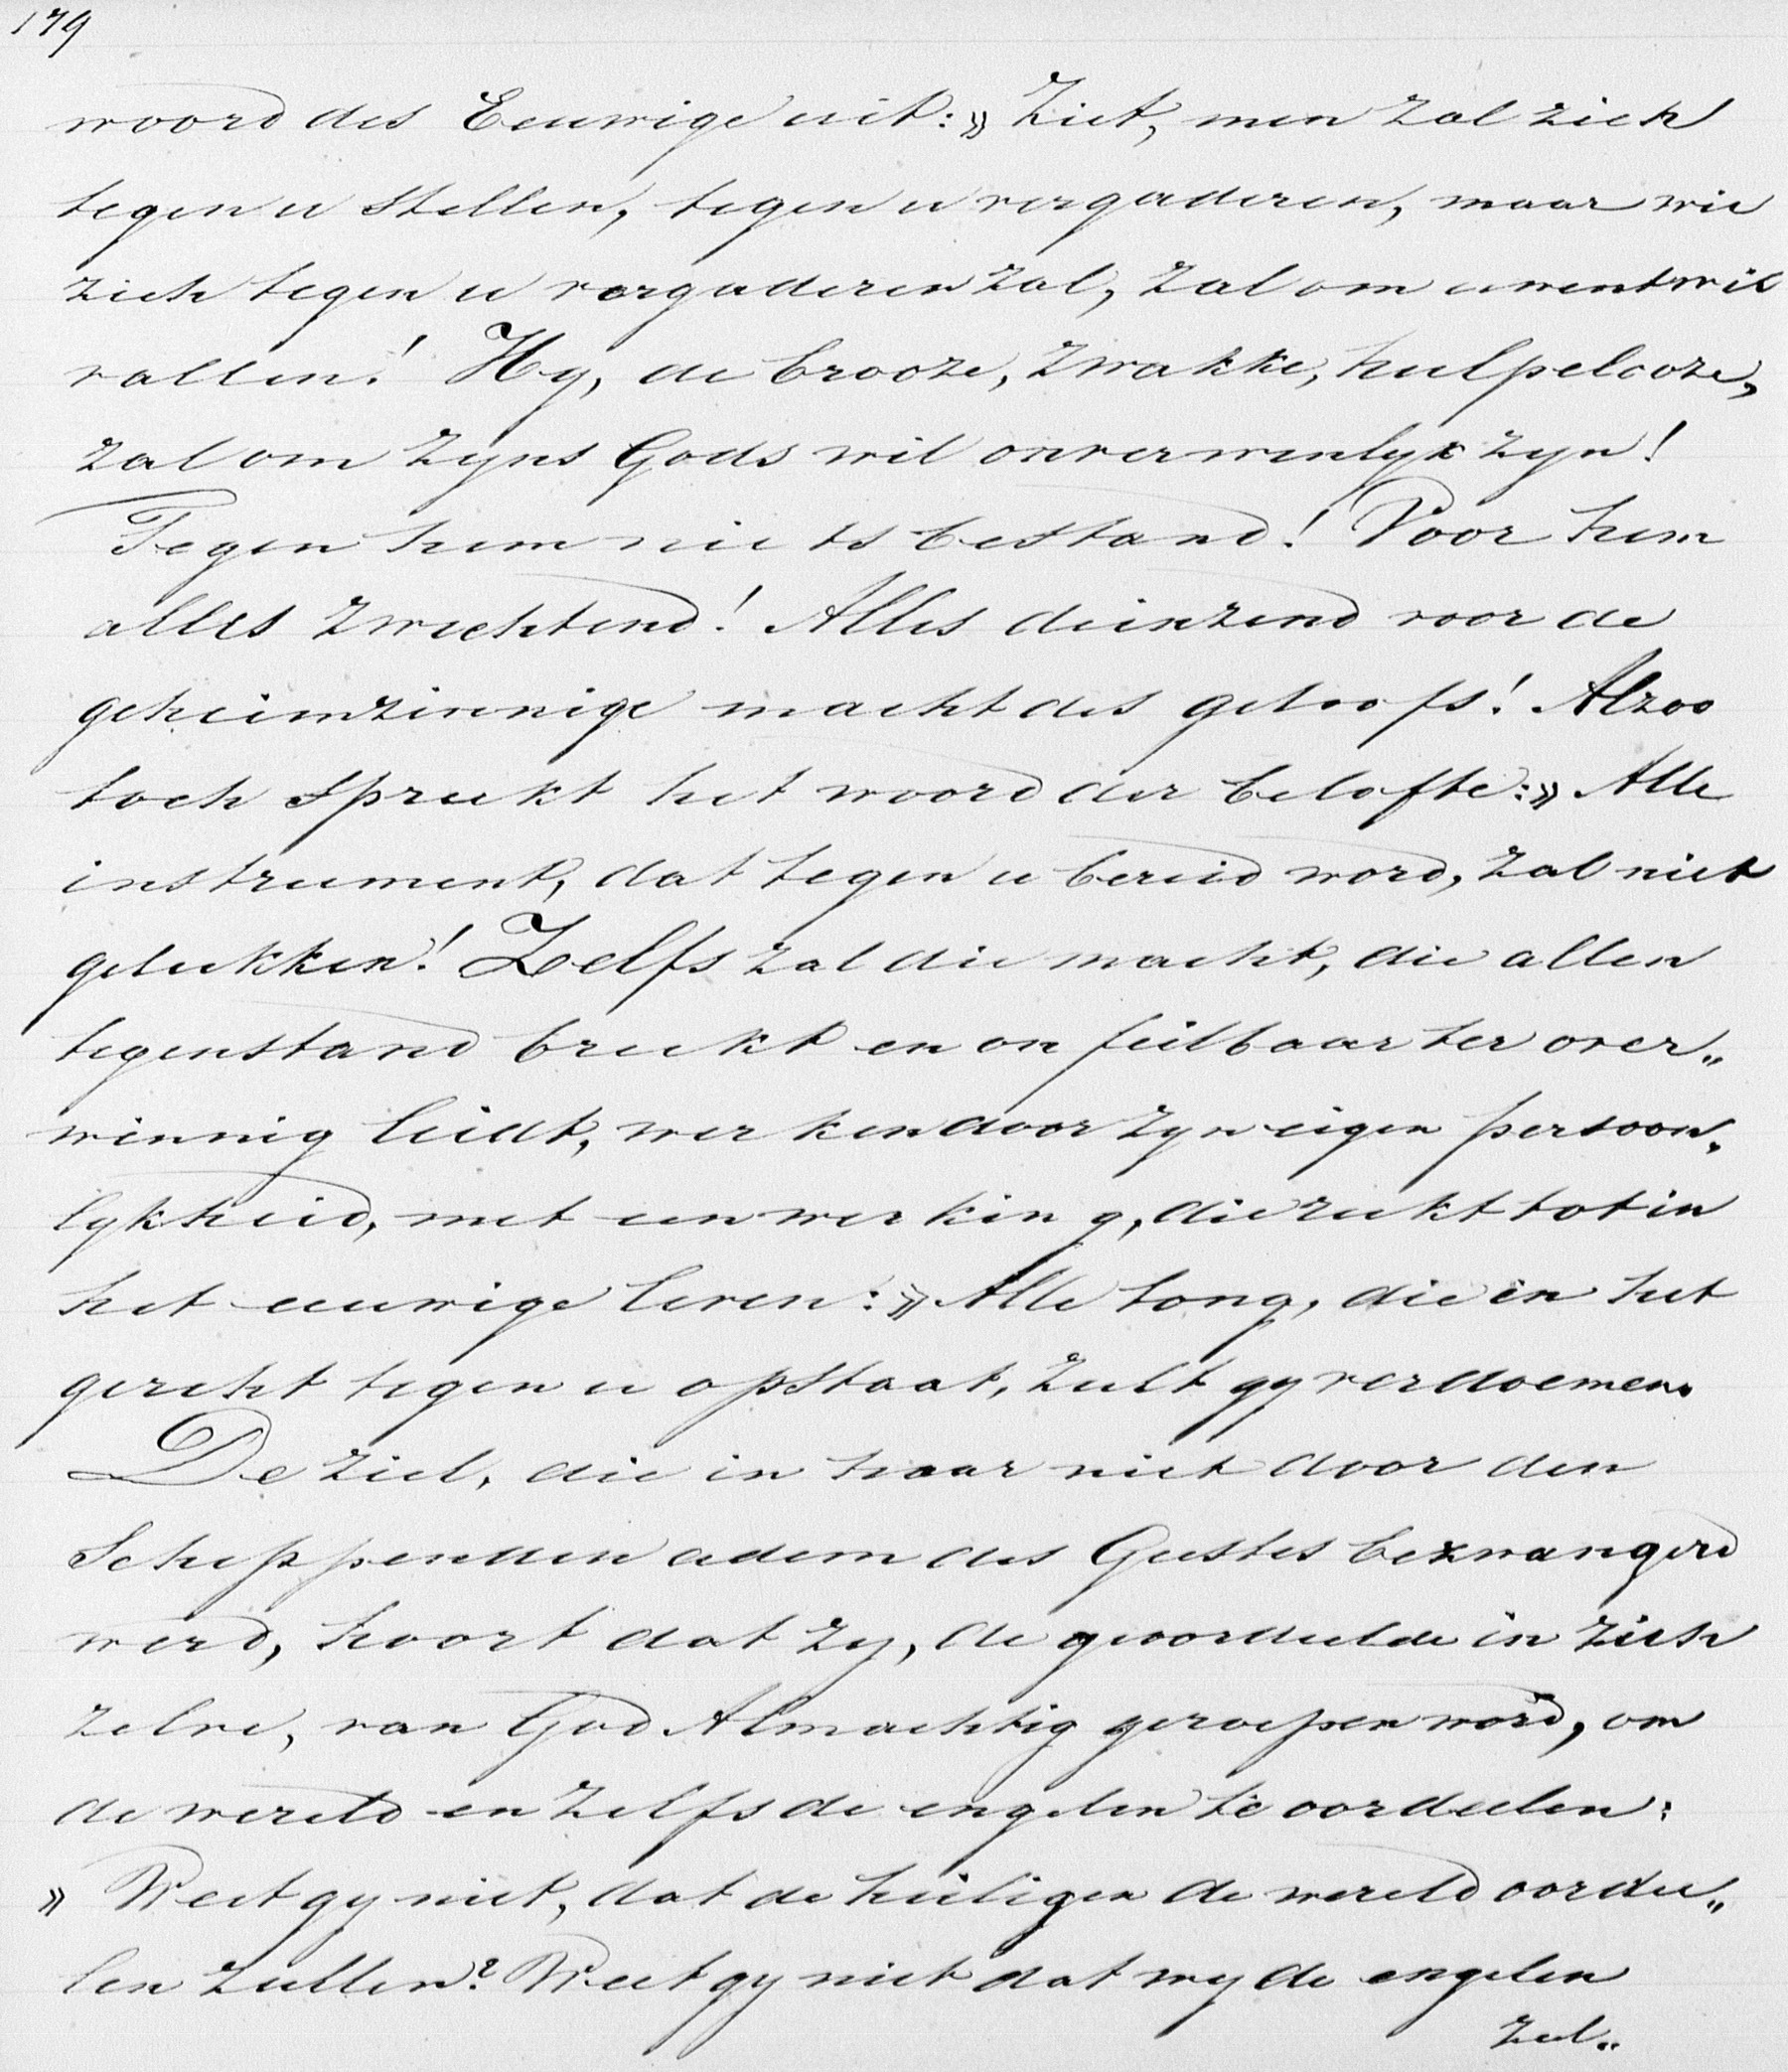 179
woord des Eeuwige uit: » Ziet, men zal zich
tegen u stellen, tegen u vergaderen, maar wie
zich tegen u vergaderen zal, zal om uwentwil
vallen! Hy, de brooze, zwakke, hulpelooze,
zal om zyns Gods wil onverwinlyk zyn!
Tegen hem niets bestand! Voor hem
alles zwichtend! Alles deinzend voor de
geheimzinnige macht des geloofs! Alzoo
toch spreekt het woord der belofte: » Alle
instrument, dat tegen u bereid word, zal niet
gelukken! Zelfs zal die macht, die allen
tegenstand breekt en onfeilbaar ter over„
winnig leidt, werken door zyn eigen persoon„
lykheid, met een werking, die reikt tot in
het eeuwige leven: » Alle tong, die in het
gericht tegen u opstaat, zult gy verdoemen.
De ziel, die in haar niet door den
Scheppenden adem des Geestes bezwangerd
werd, hoort dat zy, de geoordeelde in zich
zelve, van God Almachtig geroepen word, om
de wereld en zelfs de engelen te oordeelen:
» Weet gy niet, dat de heiligen de wereld oordee„
len zullen? Weet gy niet dat wy de engelen
zul„